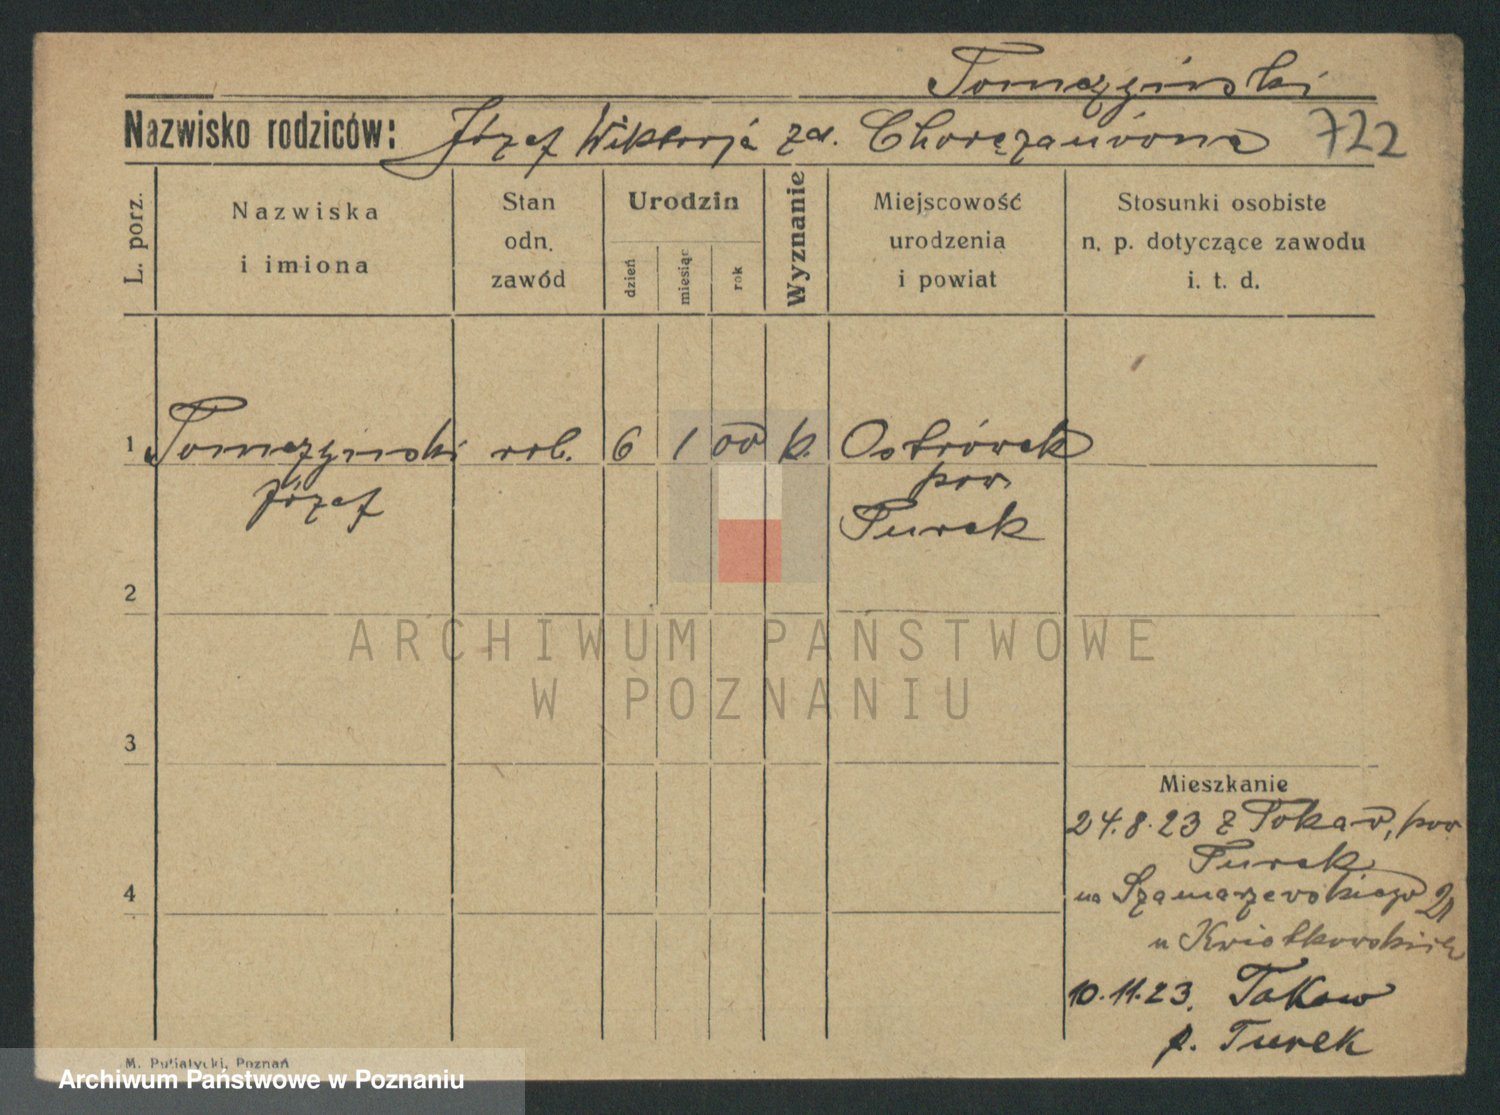 Tomczyński
Nazwisko rodziców: Józef Wiktorja zd. 722
L. porz.
Nazwiska
i imiona
Stan
odn.
zawód
Urodzin
dzień
miesiąc
rok
Wyznanie
Miejscowość
urodzenia
i powiat
Stosunki osobiste
n. p. dotyczące zawodu
i. t. d.
1 Tomczyński rob. 6 1 00 k. Ostrówek
Józef pow.
Turek
2
ARCHIWUM PAŃSTWOWE
W POZNANIU
3
Mieszkanie
24.8.23 z Tokar, pow
Turek
4
na Szamarzewskiego 21
u Kwiatkowskich
10.11.23. Tokar
p. Turek
M. Putiatycki, Poznań
Archiwum Państwowe w Poznaniu